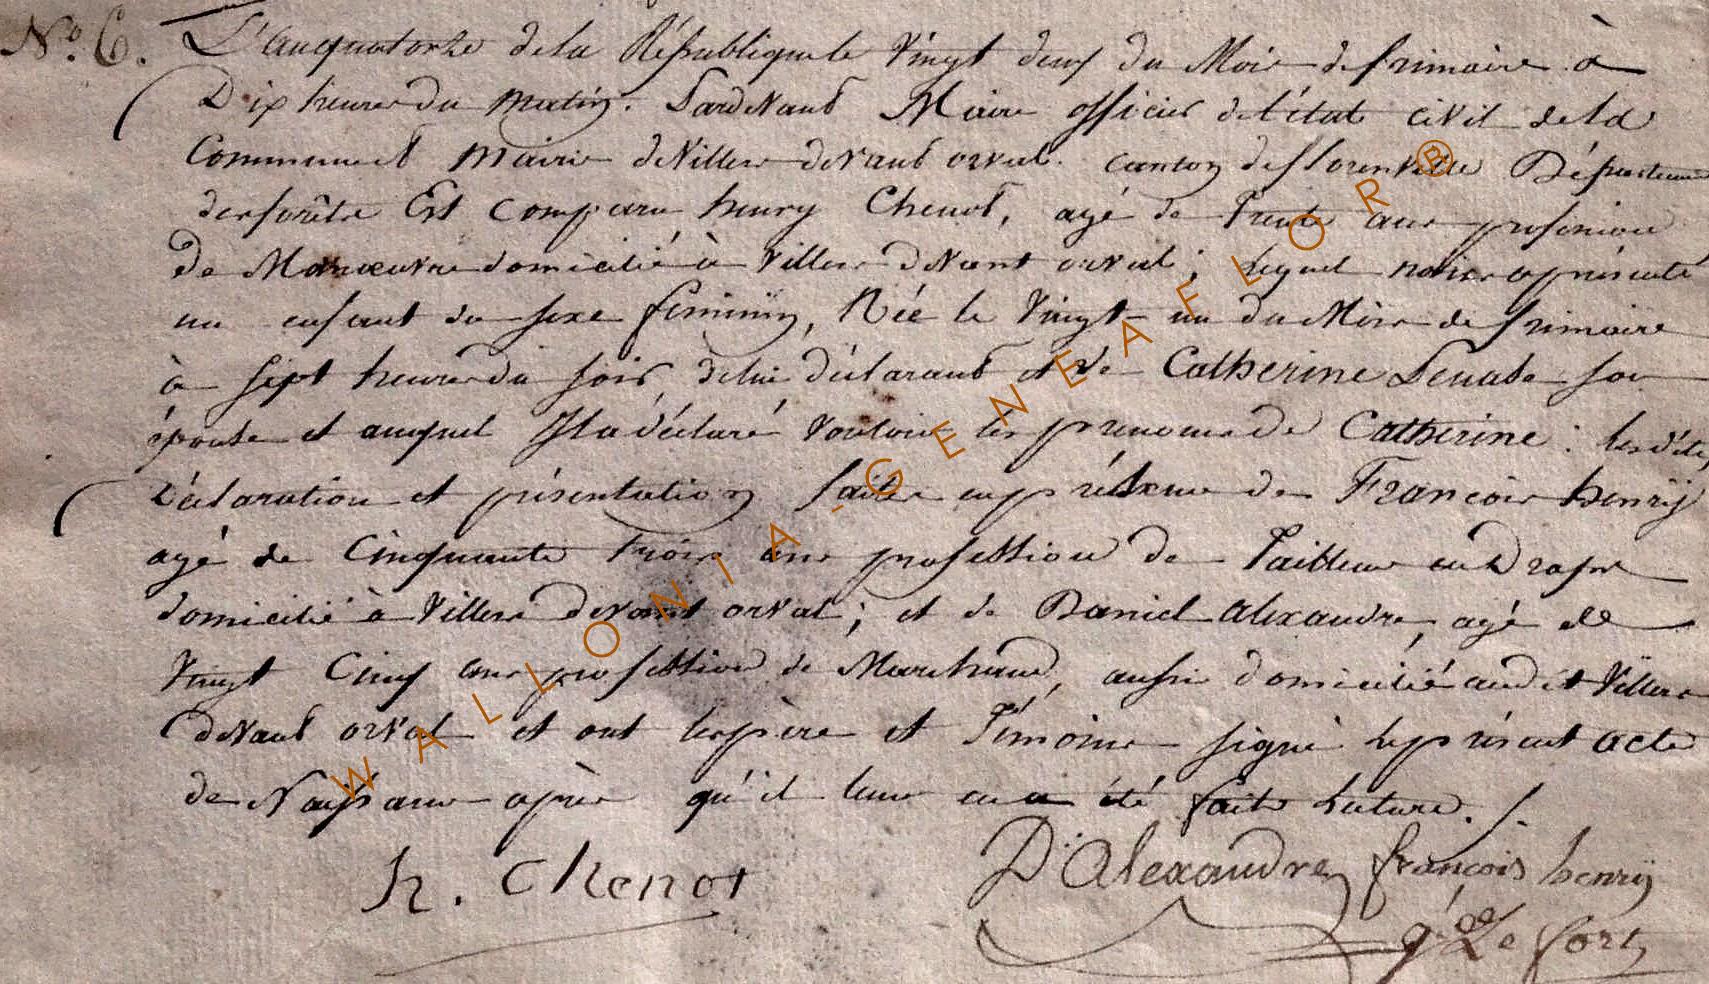 N.º 6. L'an quatorze de la République le Vingt deux du Mois de frimaire à
Dix heures du matin. Pardevant Maire officier de l'état civil de la
Commune et Mairie de Villers devant orval. canton de florenville Département
des forêts Est comparu henry Chenot, agé de Trente ans profession
de Manœuvre domicilié à Villers devant orval; lequel nous a présenté
un enfant du sexe feminin, Née le Vingt un du Mois de frimaire
à sept heures du soir, de lui déclarant et de Catherine son
épouse et auquel Il a déclaré Vouloir les prenoms de Catherine: les dites
Déclaration et présentation faites en présence de François henrÿ
agé de Cinquante trois ans profession de Tailleur
domicilié à Villers devant orval; et de Daniel alexandre, agé de
Vingt Cinq ans profession de Marchand, aussi domicilié audit Villers
devant orval et ont les père et Témoins signé le présent acte
de Naissance après qu'il leur en a été fait lecture. /.
h. Chenot
D. Alexandre françois henrÿ
Le fort
WALLONIA-GENEAFLOR®